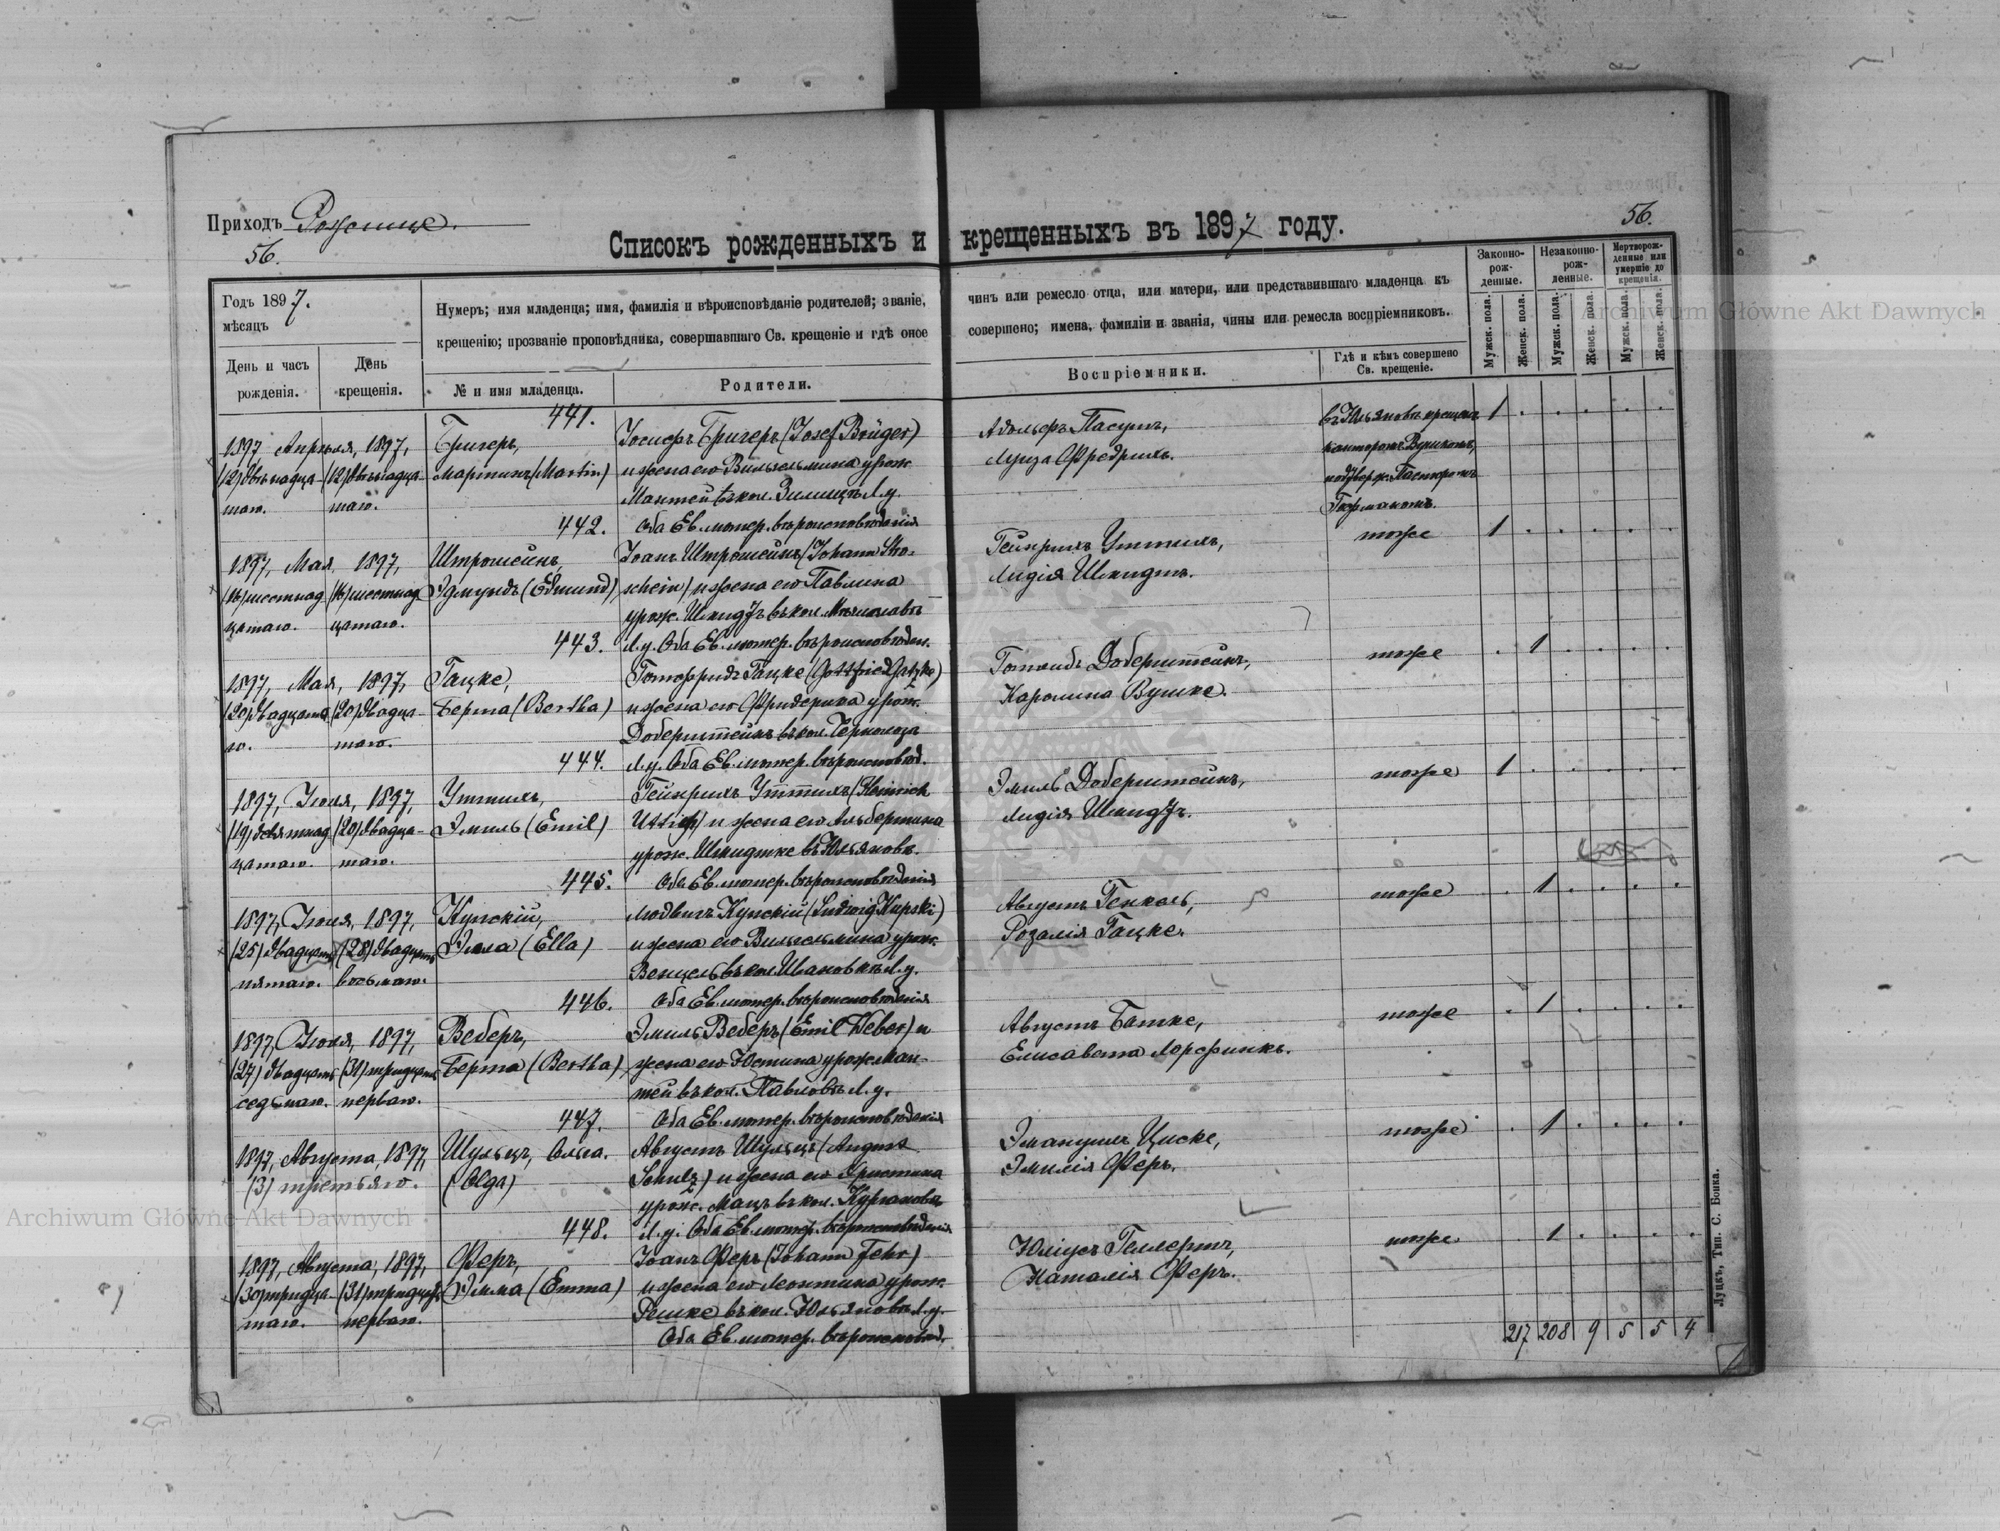 Приходъ Рожище.
56.
56.
Списокъ рожденныхъ и крещенныхъ въ 1897 году.
Годъ 1897.
мѣсяцъ
День и часъ рожденія.
День крещенія.
Нумеръ; имя младенца; имя, фамилія и вѣроисповѣданіе родителей; званіе, чинъ или ремесло отца, или матери, или представившаго младенца къ
крещенію; прозваніе проповѣдника, совершавшаго Св. крещеніе и гдѣ оное совершено; имена, фамиліи и званія, чины или ремесла воспріемниковъ.
№ и имя младенца.
Родители.
Воспріемники.
Гдѣ и кѣмъ совершено
Св. крещеніе.
Законно-
рож-
денные.
Незаконно-
рож-
денные.
Мертворож-
денные или
умершіе до
крещенія.
Мужск. пола.
Женск. пола.
Мужск. пола.
Женск. пола.
Мужск. пола.
Женск. пола.
441.
1897, Апрѣля, 1897,
(12) двѣнадца-
таго.
(12) двѣнадца-
таго.
Бригеръ,
Мартинъ (Martin)
Іосифъ Бригеръ (Josef Brüger)
и жена его Вильгельмина урож.
Мантей въ кол. Л.у.
Оба Ев. лютер. вѣроисповѣданія
Адольфъ
Луиза Фредрихъ.
въ Юльяновкѣ крещен.
канторомъ
подтверж. Пасторомъ
1
442.
1897, Мая, 1897,
(16) шестнад
цатаго.
(16) шестнад
цатаго.
Штрошейнъ,
Эдмундъ (Edmund)
Іоанъ Штрошейнъ (Johann Stro-
schein) и жена его Павлина
урож. Шмидтъ въ кол.
Л.у. Оба Ев. лютер. вѣроисповѣдан.
Гейнрихъ Уттихъ,
Лидія Шмидтъ.
тоже
1
443.
1897, Мая, 1897,
(20) двадцата
го.
(20) двадца-
таго.
Гацке,
Берта (Bertha)
Готфридъ Гацке (Gottfried Gatzke)
и жена его Фридерика урож.
Доберштейнъ въ кол.
Л.у. Оба Ев. лютер. вѣроисповѣд.
Готлибъ Доберштейнъ,
Каролина Вушке.
тоже
1
444.
1897, Іюля, 1897,
(19) девятнад
цатаго.
(20) двадца-
таго.
Уттихъ,
Эмиль (Emil)
Гейнрихъ Уттихъ (Heinrich
Uttich) и жена его Альбертина
урож. Шмидтке въ Юльяновкѣ.
Оба Ев. лютер. вѣроисповѣданія
Эмиль Доберштейнъ,
Лидія Шмидтъ.
тоже
1
445.
1897, Іюля, 1897,
(25) двадцать
пятаго.
(28) двадцать
восьмаго.
Купскій,
Элла (Ella)
Людвигъ Купскій (Ludwig Kupski)
и жена его Вильгельмина урож.
Венцель въ кол. Ивановкѣ Л.у.
Оба Ев. лютер. вѣроисповѣданія
Августъ Генкель,
Розалія Гацке.
тоже
1
446.
1897, Іюля, 1897,
(27) двадцать
седьмаго.
(31) тридцать
перваго.
Веберъ,
Берта (Bertha)
Эмиль Веберъ (Emil Weber) и
жена его Юстина урож. Ман-
тей въ кол. Павловкѣ Л.у.
Оба Ев. лютер. вѣроисповѣданія
Августъ Батке,
Елисавета
тоже
1
447.
1897, Августа, 1897,
(3) третьяго.
Шульцъ, Ольга.
(Olga)
Августъ Шульцъ (August
Schulz) и жена его Христина
урож. Мацъ въ кол.
Л.у. Оба Ев. лютер. вѣроисповѣданія
Эмануилъ Циске,
Эмилія Феръ.
тоже
1
448.
1897, Августа, 1897,
(30) тридца-
таго.
(31) тридцать
перваго.
Феръ,
Эмма (Emma)
Іоанъ Феръ (Johann Fehr)
и жена его Леонтина урож.
въ кол. Юльяновкѣ Л.у.
Оба Ев. лютер. вѣроисповѣд.
Юліусъ Геллертъ,
Наталія Феръ.
тоже
1
217 208 9 5 5 4
Луцкъ, Тип. С. Бонка.
Archiwum Główne Akt Dawnych
Archiwum Główne Akt Dawnych